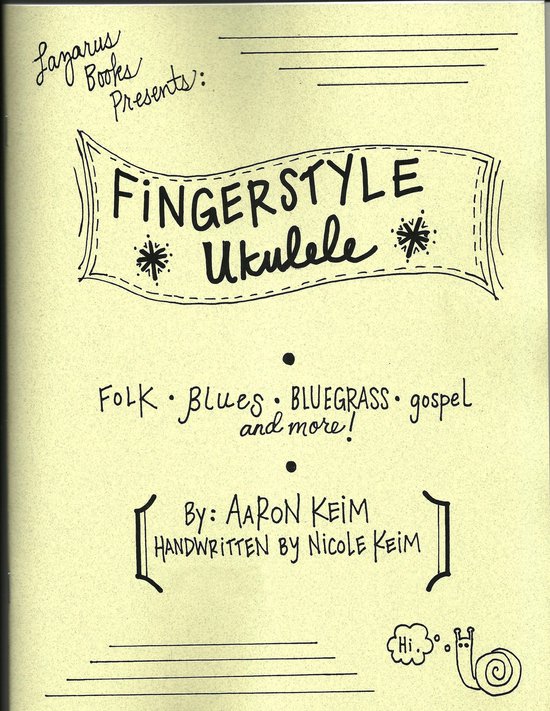 Lazarus
Books
Presents:
FiNGERSTYLE
Ukulele
FOLK • Blues • BLUEGRASS • gospel
and more!
By: AARON KEiM
HANDWRITTEN By NiCOLE KEiM
Hi.